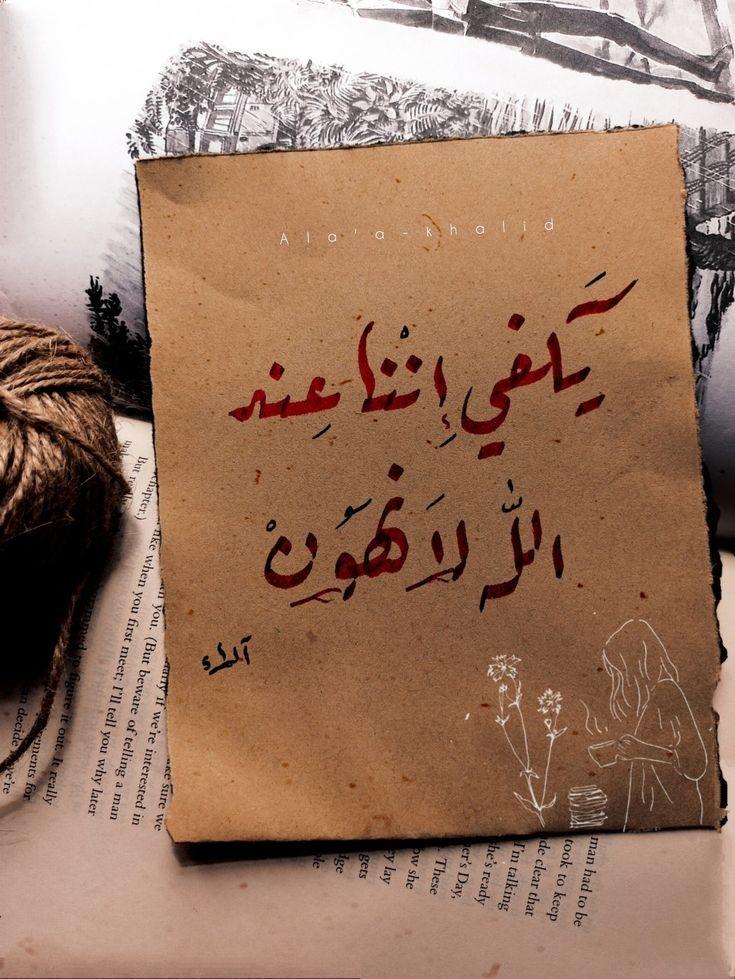 Ala'a-khalid
يَكفي إِنْنا عِند
اللّٰه لَا نَهَوَنْ
آلاء
But really
chapter.)
like when you first meet; I'll tell you why later
with you. (But beware of telling a man
early if we're interested in
make sure we
to figure it out. It really
decide we're
man had to be
took to keep
de clear that
I'm talking
he's ready
er's Day,
These
ow she
ey lay
gets
dge
ple